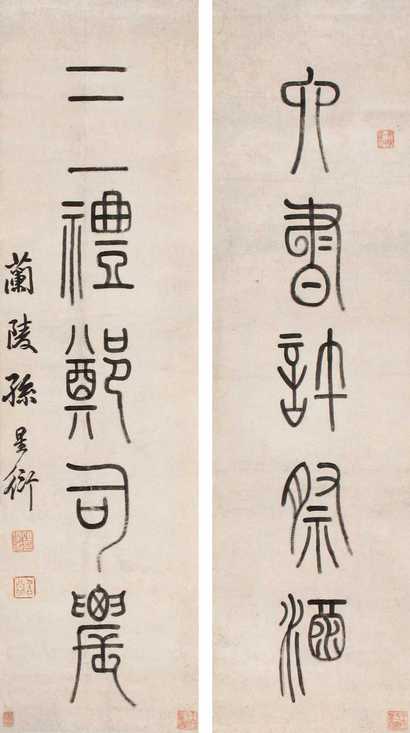 六書許祭酒
三禮鄭司農
蘭陵孫星衍